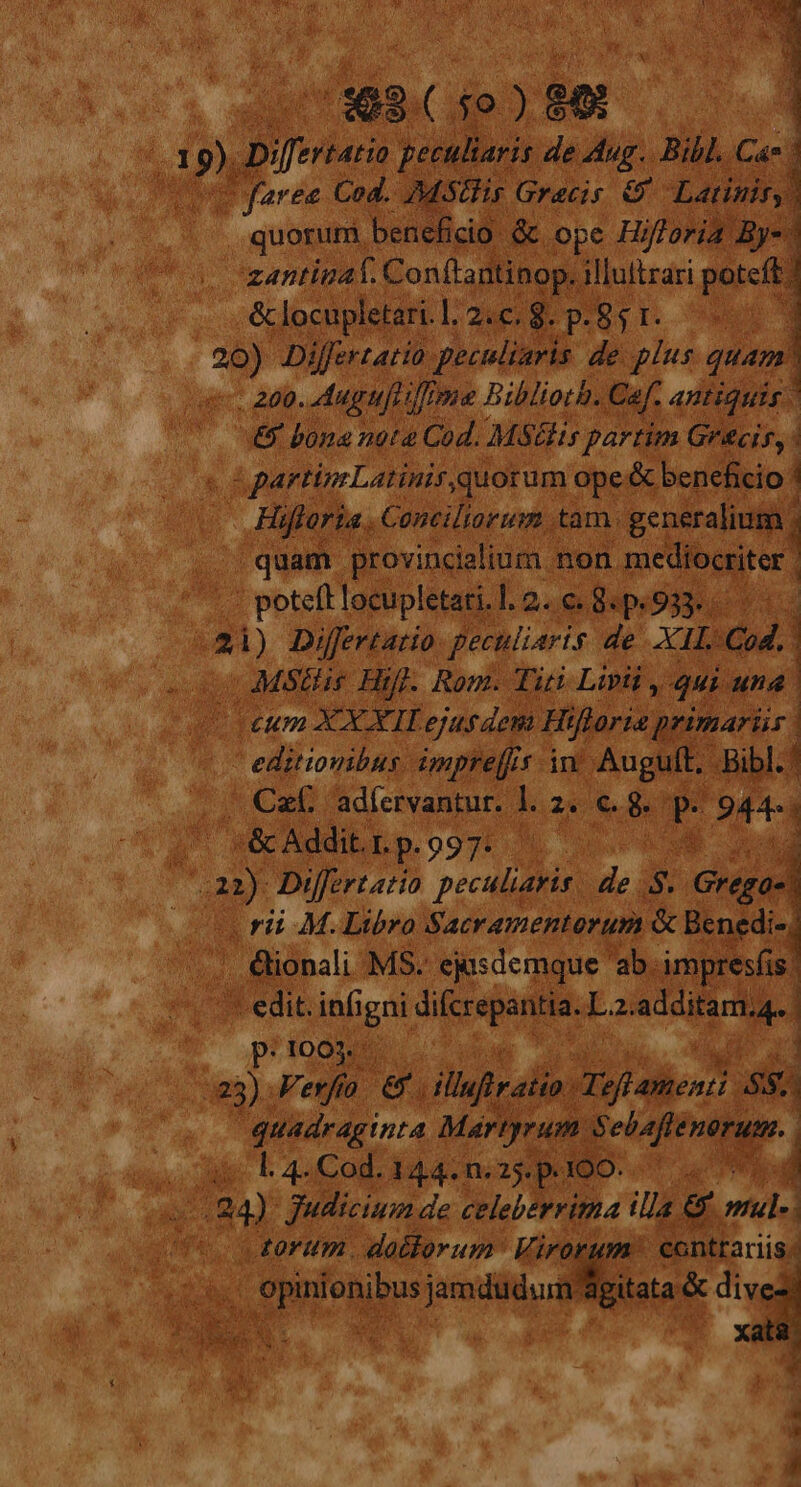 ( 50 )
19) Dissertatio peculiaris de Aug. Bibl. Cæ-
sareæ Cod. MSctis Græcis & Latinis,
quorum beneficio & ope Historia By-
zantina s. Constantinop. illustrari potest
& locupletari. l. 2. c. 8. p. 851.
20) Dissertatio peculiaris de plus quam
200. Augustissimæ Biblioth. Cæs. antiquis
& bonæ notæ Cod. MSctis partim Græcis,
partim Latinis, quorum ope & beneficio
Historia Conciliorum tam generalium
quam provincialium non mediocriter
potest locupletari. l. 2. c. 8. p. 933.
21) Dissertatio peculiaris de XII. Cod.
MSctis Hist. Rom. Titi Livii, qui una
cum XXXII ejusdem Historiæ primariis
editionibus impressis in August. Bibl.
Cæs. adservantur. l. 2. c. 8. p. 944.
& Addit. 1. p. 997.
22) Dissertatio peculiaris de S. Grego-
rii M. Libro Sacramentorum & Benedi-
ctionali MS. ejusdemque ab impresfis
edit. insigni discrepantia. L. 2. additam. 4.
p. 1003.
23) Versio & illustratio Testamenti SS.
quadraginta Martyrum Sebastenorum.
l. 4. Cod. 144. n. 25. p. 100.
24) Judicium de celeberrima illa & mul-
torum doctorum Virorum contrariis
opinionibus jamdudum agitata & dive-
xata